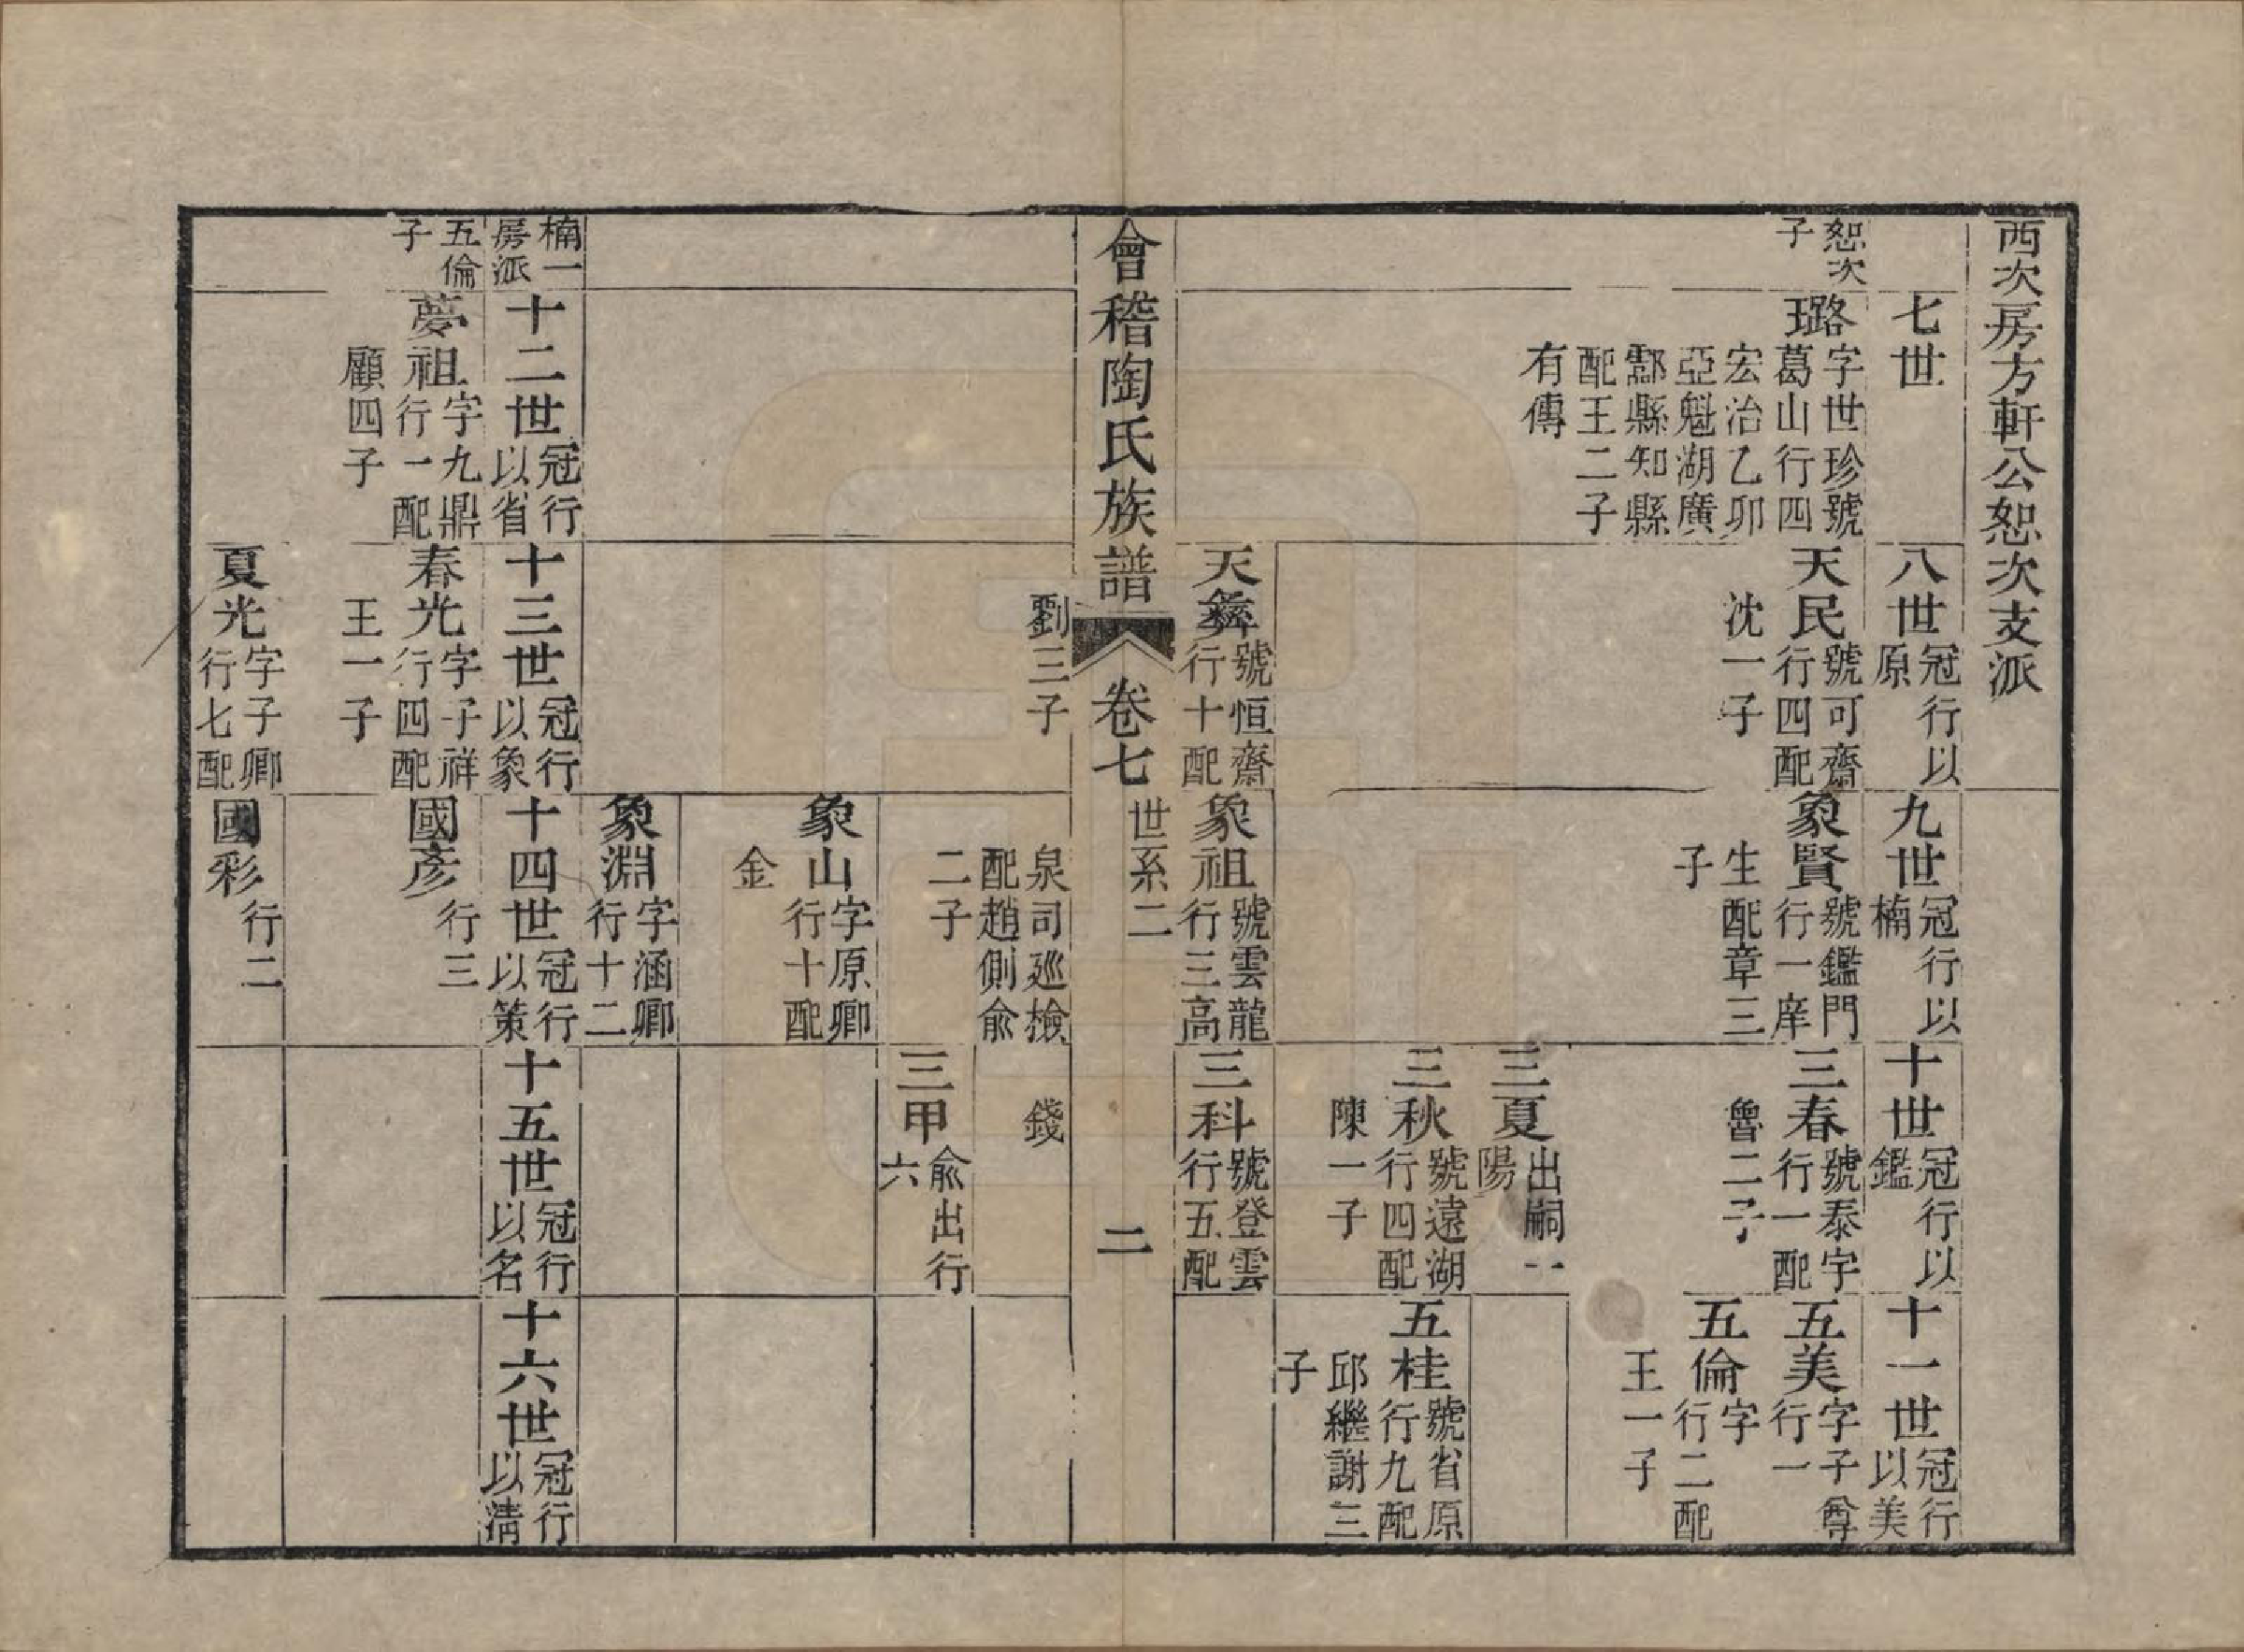 西次房方軒公恕次支派
七世
八世冠行以原
九世冠行以楠
十世冠行以鑑
十一世冠行以美
恕次子
璐字世珍號葛山行四宏治乙卯亞魁湖廣酃縣知縣配王二子有傳
天民號可齋行四配沈一子
象賢號鑑門行一庠生配章三子
三春號泰宇行一配魯二子
五美字子尊行一
五倫字 行二配王一子
三夏出嗣一陽
三秋號遠湖行四配陳一子
五桂號省原行九配邱繼謝三子
天彝號恒齋行十配劉三子
象祖號雲龍行三高泉司廵檢配趙側俞二子
三科號登雲行五配錢
會稽陶氏族譜
卷七
世系二
二
三甲俞出行六
象山字原卿行十配金
象淵字涵卿行十二
楠一房派
十二世冠行以省
十三世冠行以象
十四世冠行以策
十五世冠行以名
十六世冠行以清
五倫子
夢祖字九鼎行一配顧四子
春光字子祥行四配王一子
國彥行三
夏光字子卿行七配
國彩行二